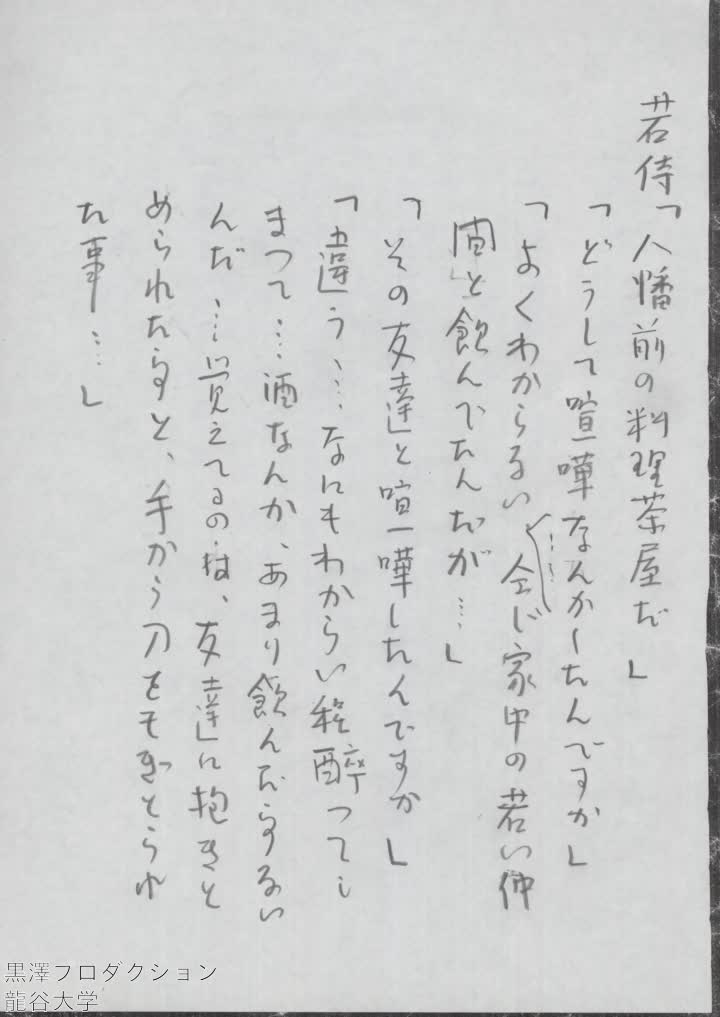 若侍「八幡前の料理茶屋だ」
「どうして喧嘩なんかしたんですか」
「よくわからない……同じ家中の若い仲
間と飲んでたんだが…」
「その友達と喧嘩したんですか」
「違う…なにもわからい程酔つてし
まつて…酒なんか、あまり飲んだらない
んだ…覚えてるのは、友達に抱きと
められたらすと、手から刀をもぎとられ
た事…」
黒澤プロダクション
龍谷大学